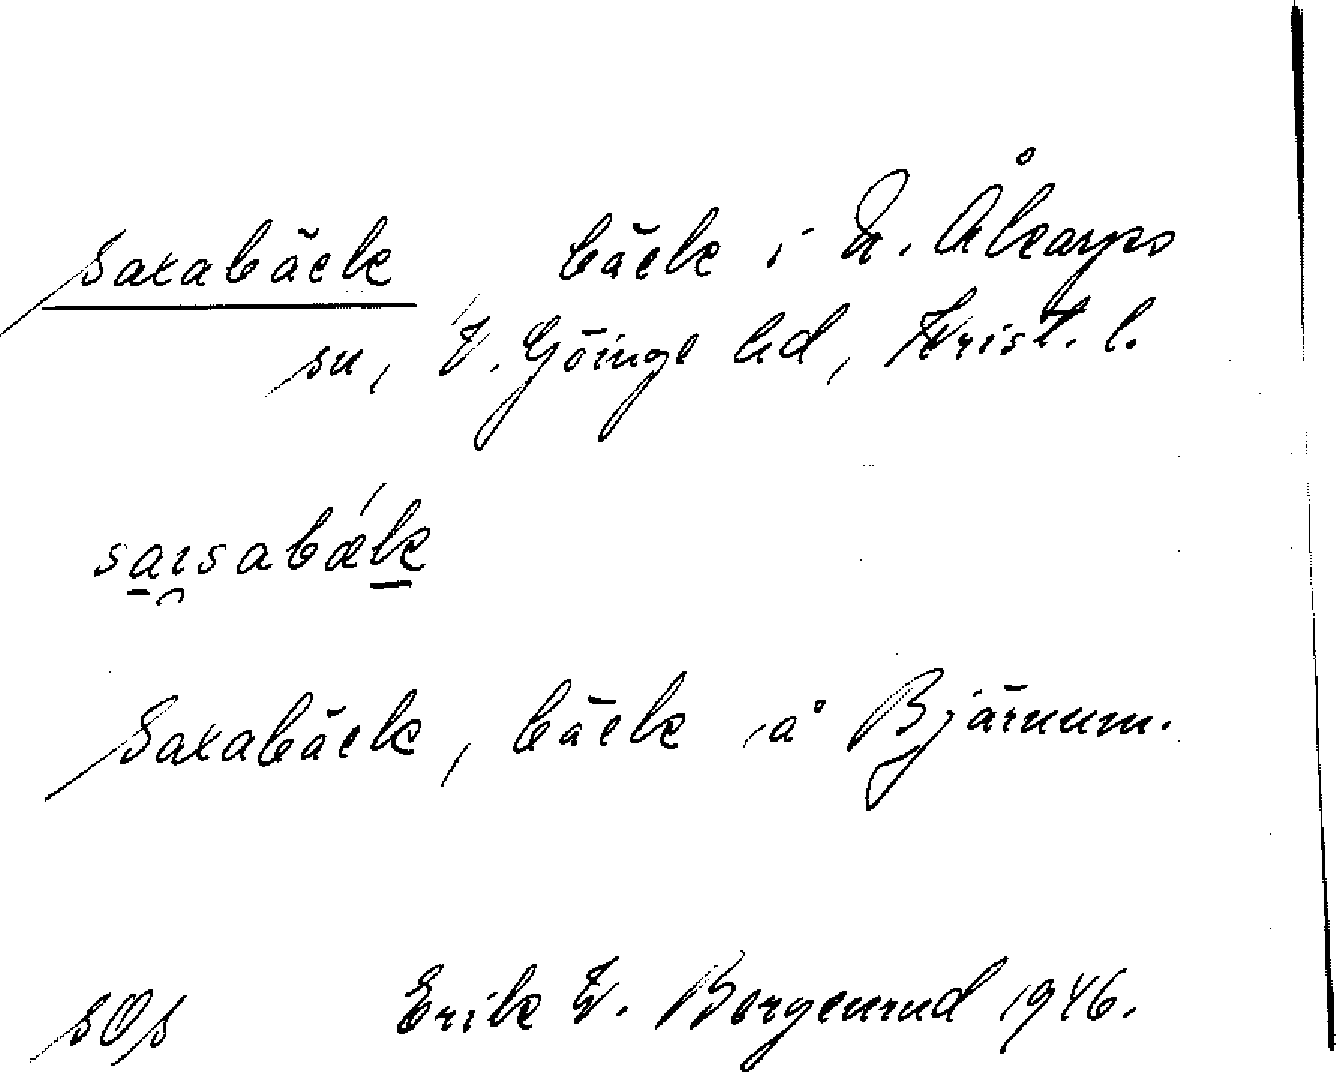 Saxabäck bäck i N. Åkarps
sn, V. Göinge hd, Krist. l.
saısabæ´k
Saxabäck, bäck å Bjärnum.
sOs Erik V. Borgenrud 1946.